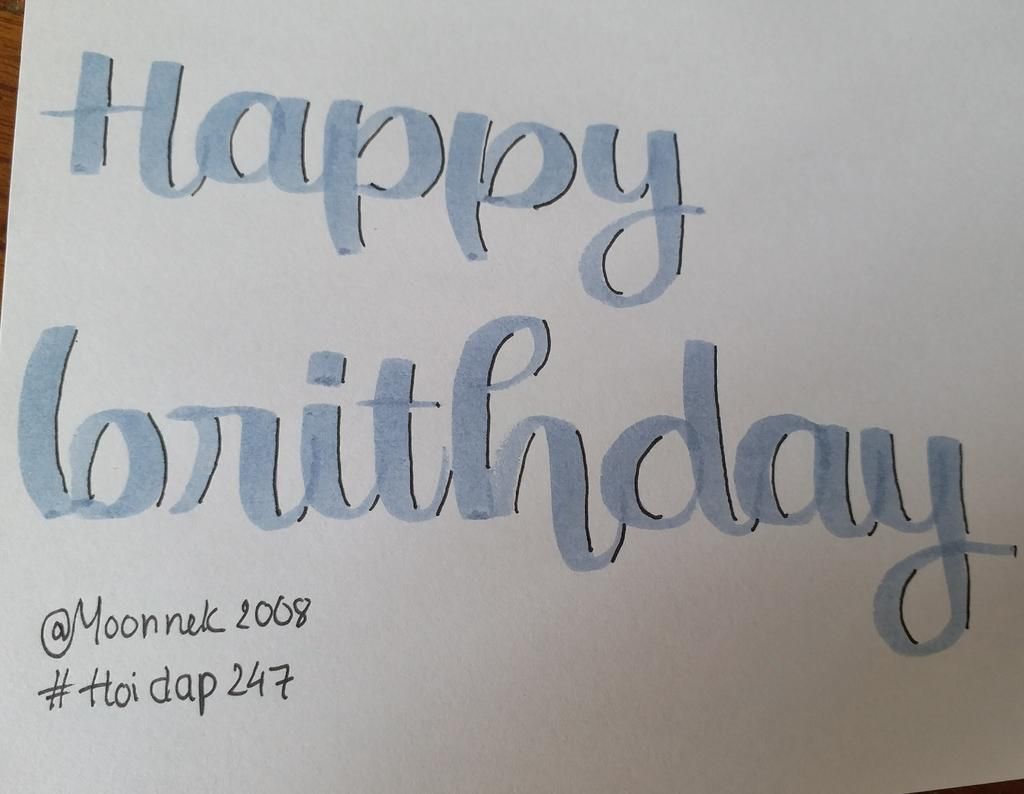 Happy
brithday
@Moonnek 2008
#Hoi dap 247